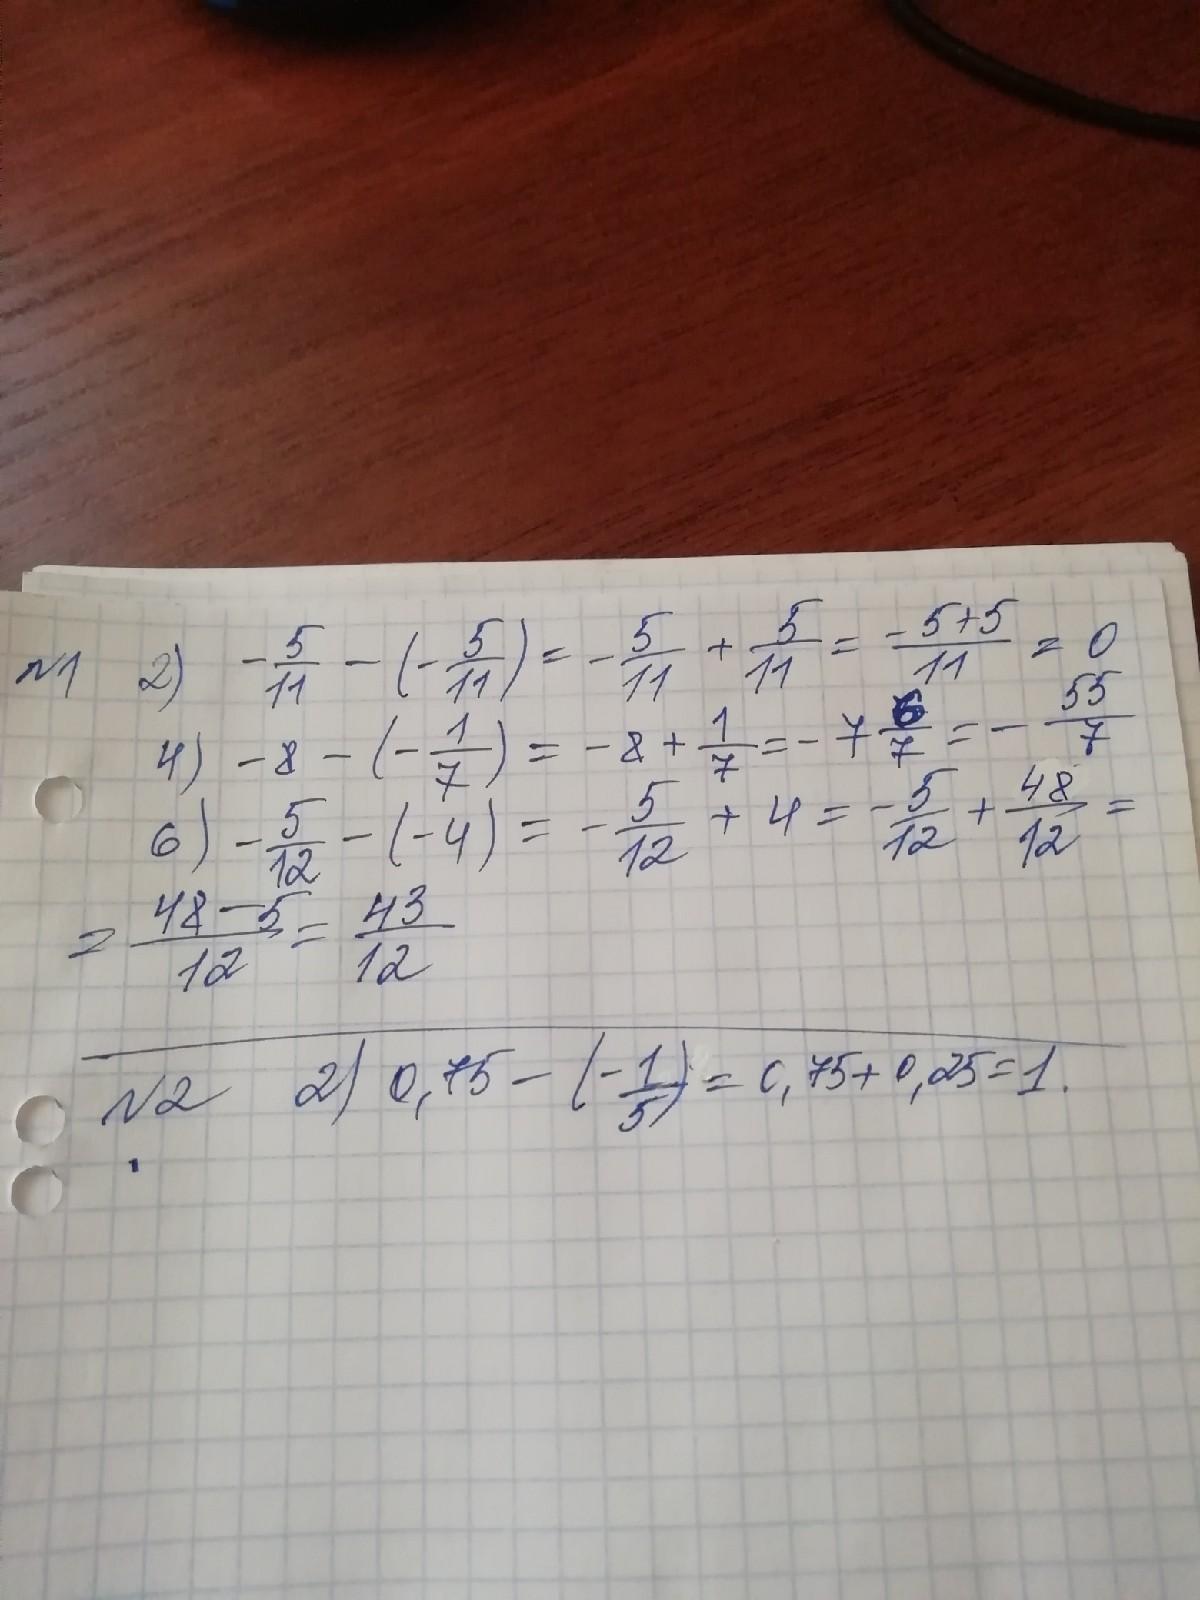 №1 2) -5/11 - (-5/11) = -5/11 + 5/11 = -5+5/11 = 0
4) -8 - (-1/7) = -8 + 1/7 = -7 6/7 = -55/7
6) -5/12 - (-4) = -5/12 + 4 = -5/12 + 48/12 =
= 48-5/12 = 43/12
№2 2) 0,75 - (-1/5) = 0,75 + 0,25 = 1.